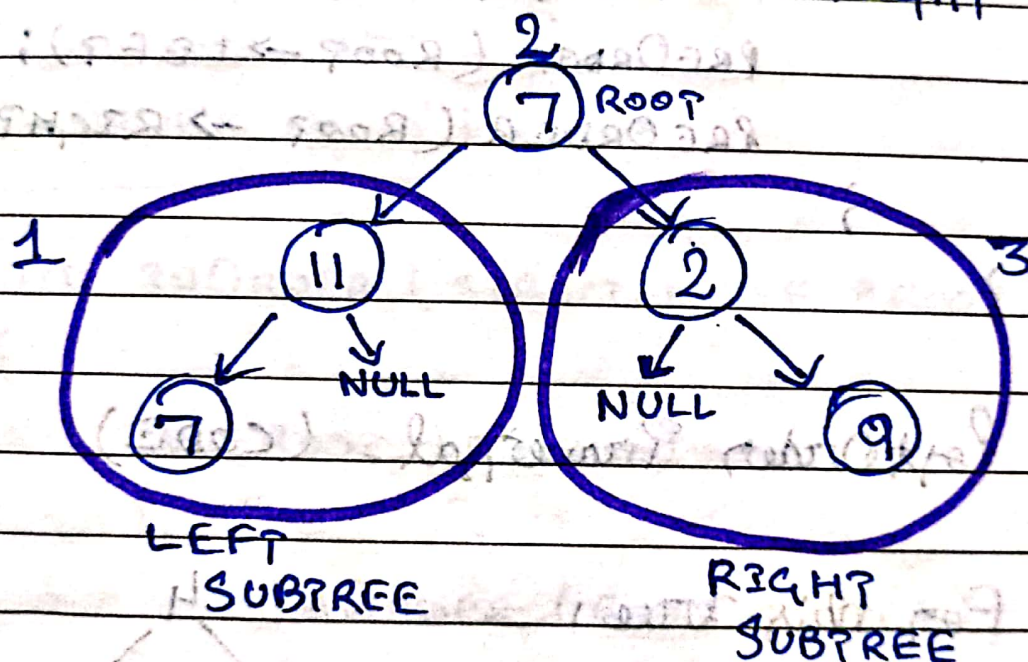 2
7 ROOT
1
11
2
3
NULL
NULL
7
9
LEFT
SUBTREE
RIGHT
SUBTREE